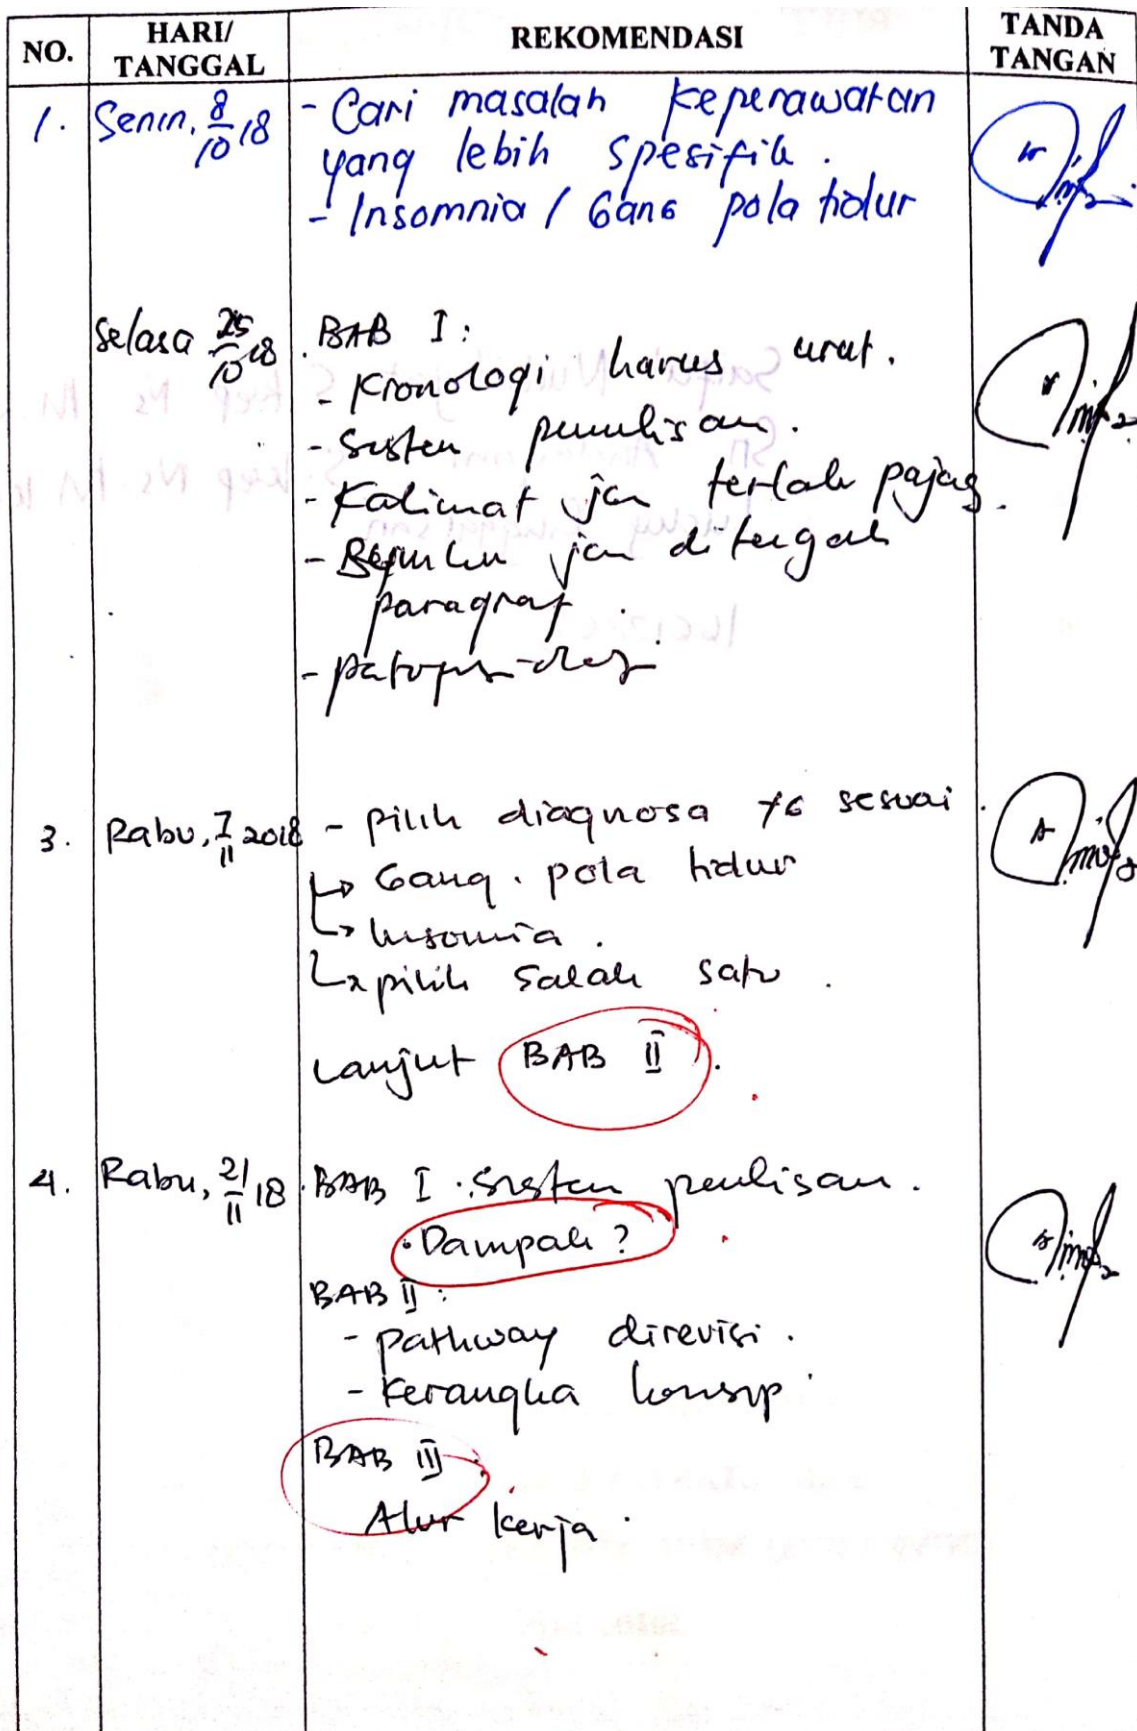 NO. HARI/ TANGGAL REKOMENDASI TANDA TANGAN
1. Senin, 8/10 18 - Cari masalah keperawatan
yang lebih spesifik.
- Insomnia / Gang pola tidur
Selasa 25/10 18 . BAB I:
- Kronologi harus urut.
- Sistem penulisan.
- Kalimat jan terlalu pajag.
- jan ditengah
paragraf.
3. Rabu, 7/11 2018 - pilih diagnosa yg sesuai.
↳ Gang. pola tidur
↳ Insomia.
↳ pilih salah satu.
Lanjut BAB II.
4. Rabu, 21/11 18 . BAB I . Sistem penlisan.
. Dampak?
BAB II:
- pathway direvisi.
- Kerangka konsep.
BAB III:
Alur kerja.